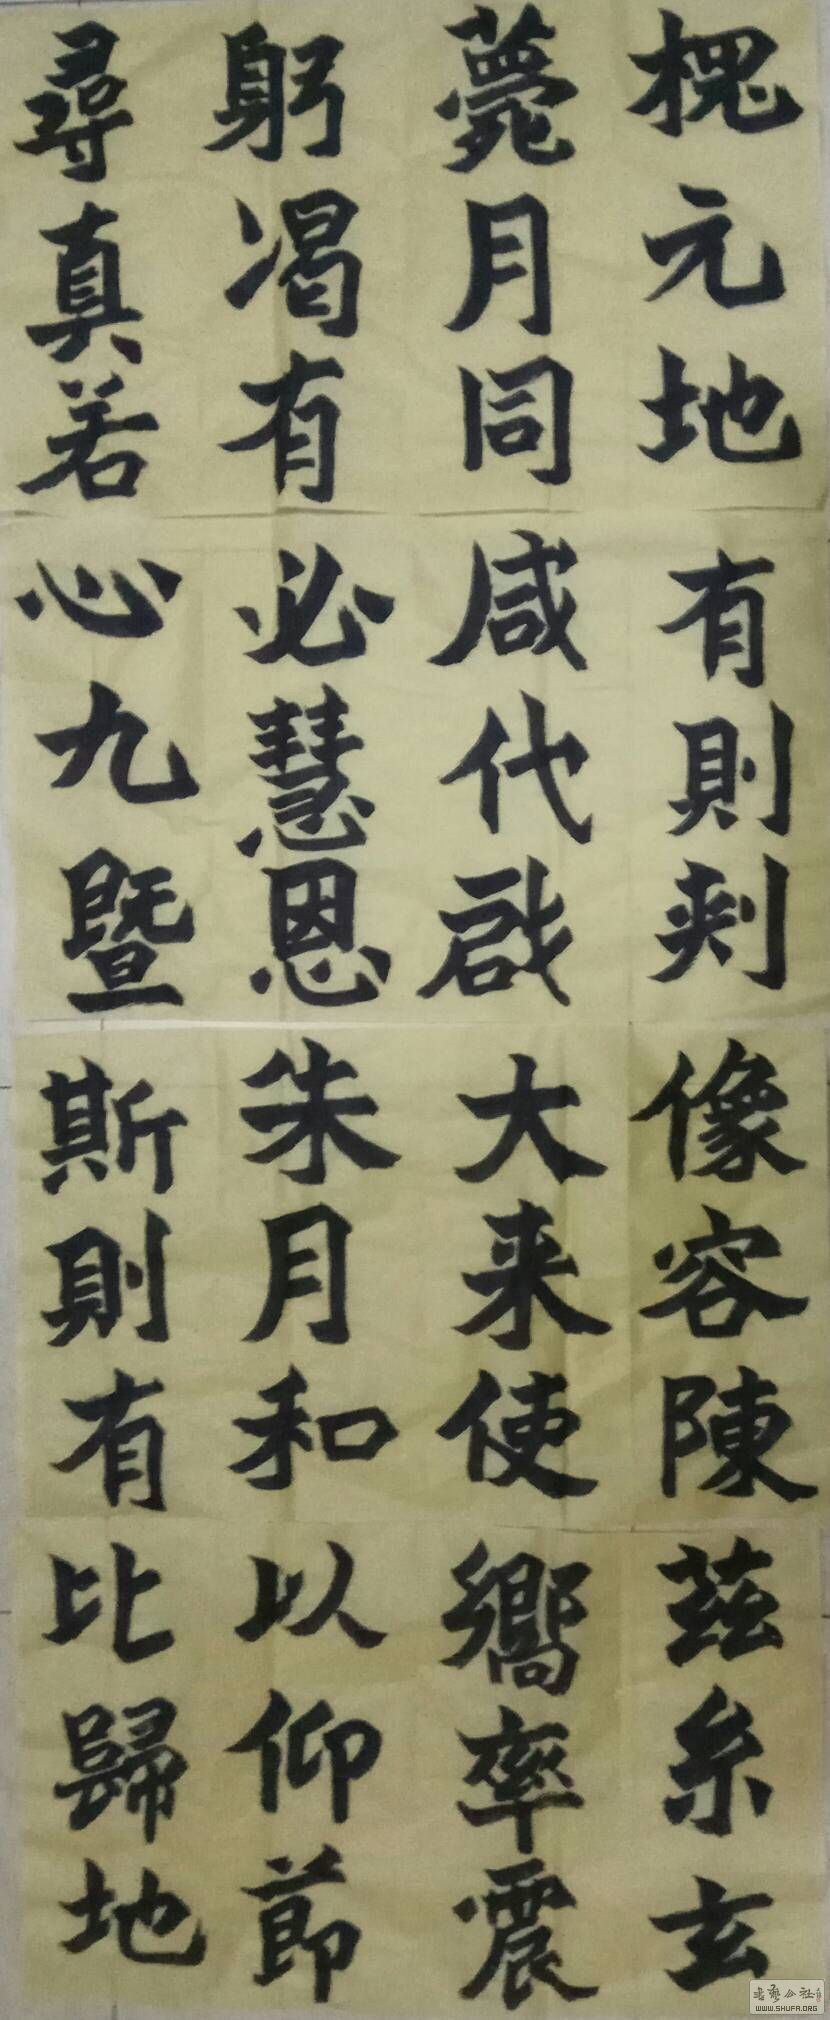 槐元地有則刾像容陳茲糸玄
薨月同咸代啟大来使嚮率震
躬渴有必慧恩朱月和以仰節
尋真若心九暨斯則有比歸地
WWW.SHUFA.ORG